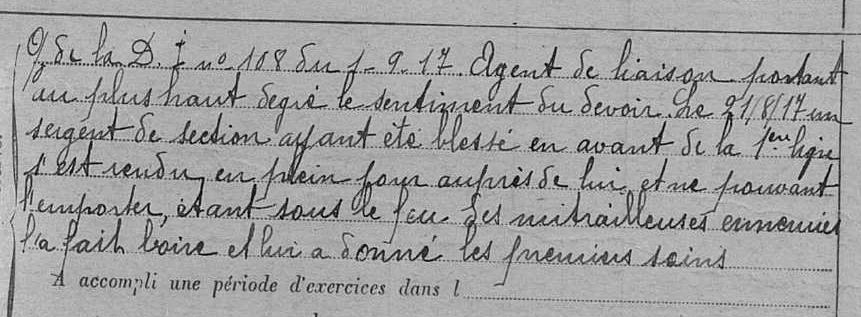 de la D. I no 108 du 1-9-17. Agent de liaison portant
au plus haut degré le sentiment du devoir. Le 21/8/17 un
sergent de section ayant été blessé en avant de la 1ère ligne
s'est rendu en plein jour auprès de lui, et ne pouvant
l'emporter, étant sous le feu des mitrailleuses ennemies
l'a fait boire et lui a donné les premiers soins
A accompli une période d'exercices dans l